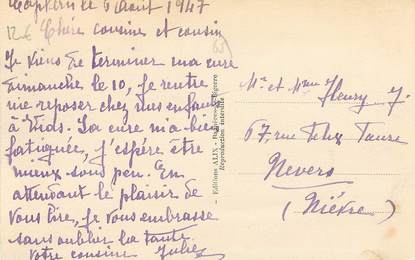 le 6 Août 1947
Chère cousine et cousin
Je viens de terminer ma cure
dimanche le 10, je rentre
me reposer chez mes enfants
à . La cure m'a bien
fatiguée, j'espère être
mieux sous peu. En
attendant le plaisir de
vous lire, je vous embrasse
sans oublier la tante
votre cousine Julie
Editions ALIX - Bagnères-de-Bigorre
Reproduction interdite
Mr et Mme Fleury J.
67, rue Faure
Nevers
(Nièvre)